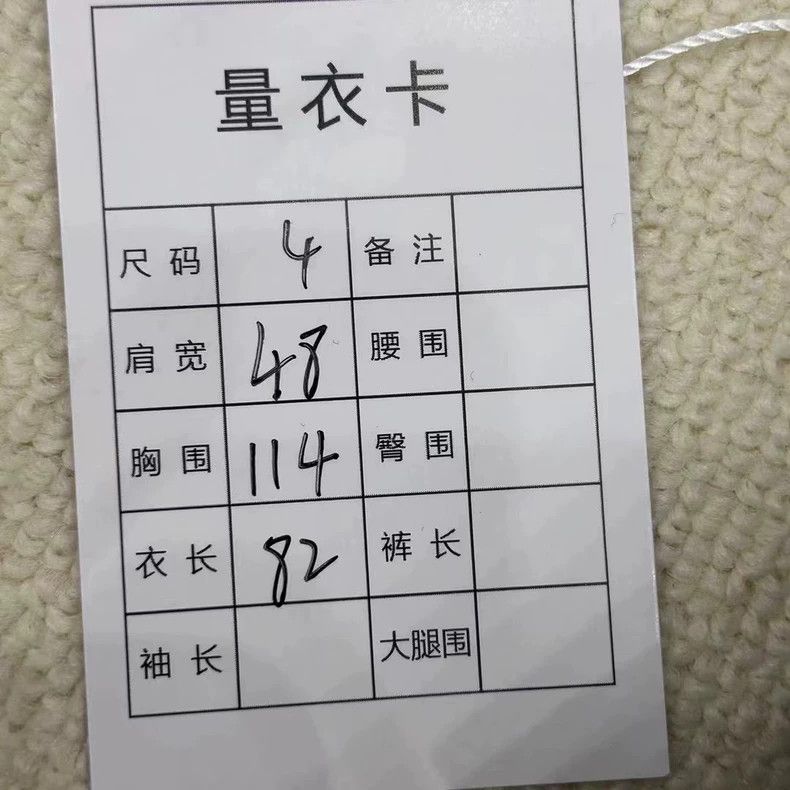 量衣卡
尺码 4 备注
肩宽 48 腰围
胸围 114 臀围
衣长 82 裤长
袖长 大腿围